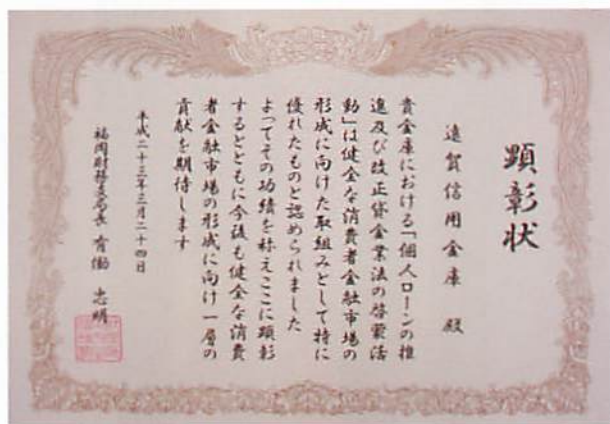 顕彰状
遠賀信用金庫 殿
貴金庫における「個人ローンの推
進及び改正貸金業法の啓蒙活
動」は健全な消費者金融市場の
形成に向けた取組みとして特に
優れたものと認められました
よってその功績を称えここに顕彰
するとともに今後も健全な消費
者金融市場の形成に向け一層の
貢献を期待します
平成二十三年三月二十四日
福岡財務支局長 有働 忠明